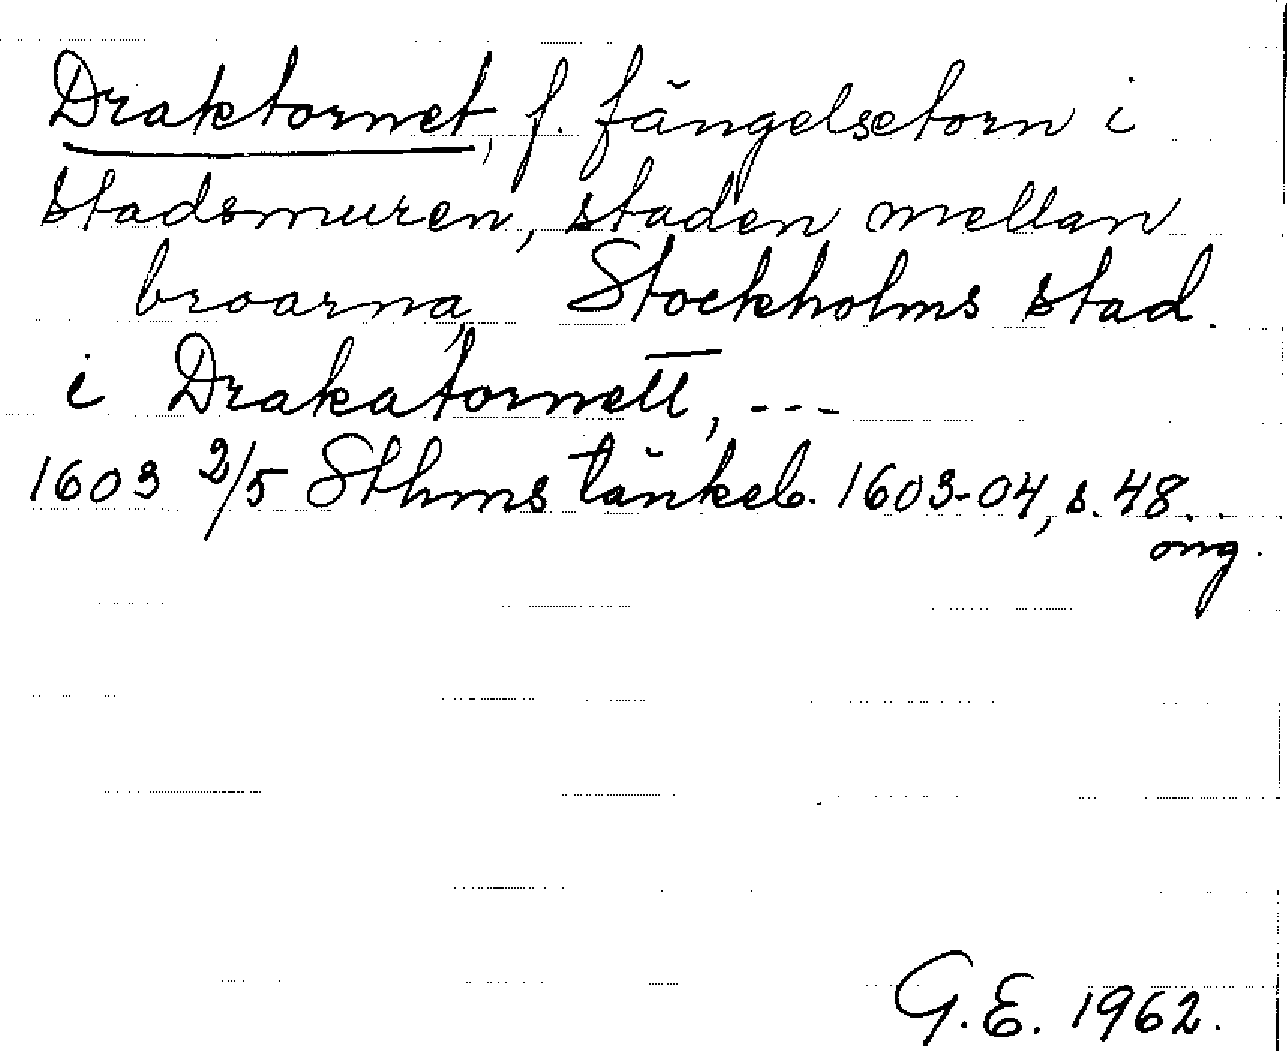 Draktornet, f. fängelsetorn i
stadsmuren, staden mellan
broarna, Stockholms stad.
i Drakatornett, ---
1603 2/5 Sthms tänkeb. 1603-04, s. 48.
orig.
G.E. 1962.